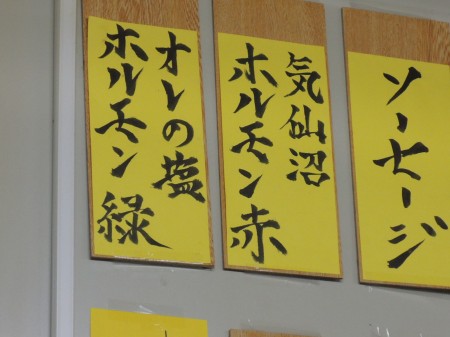 ソーセージ
気仙沼
ホルモン赤
オレの塩
ホルモン緑